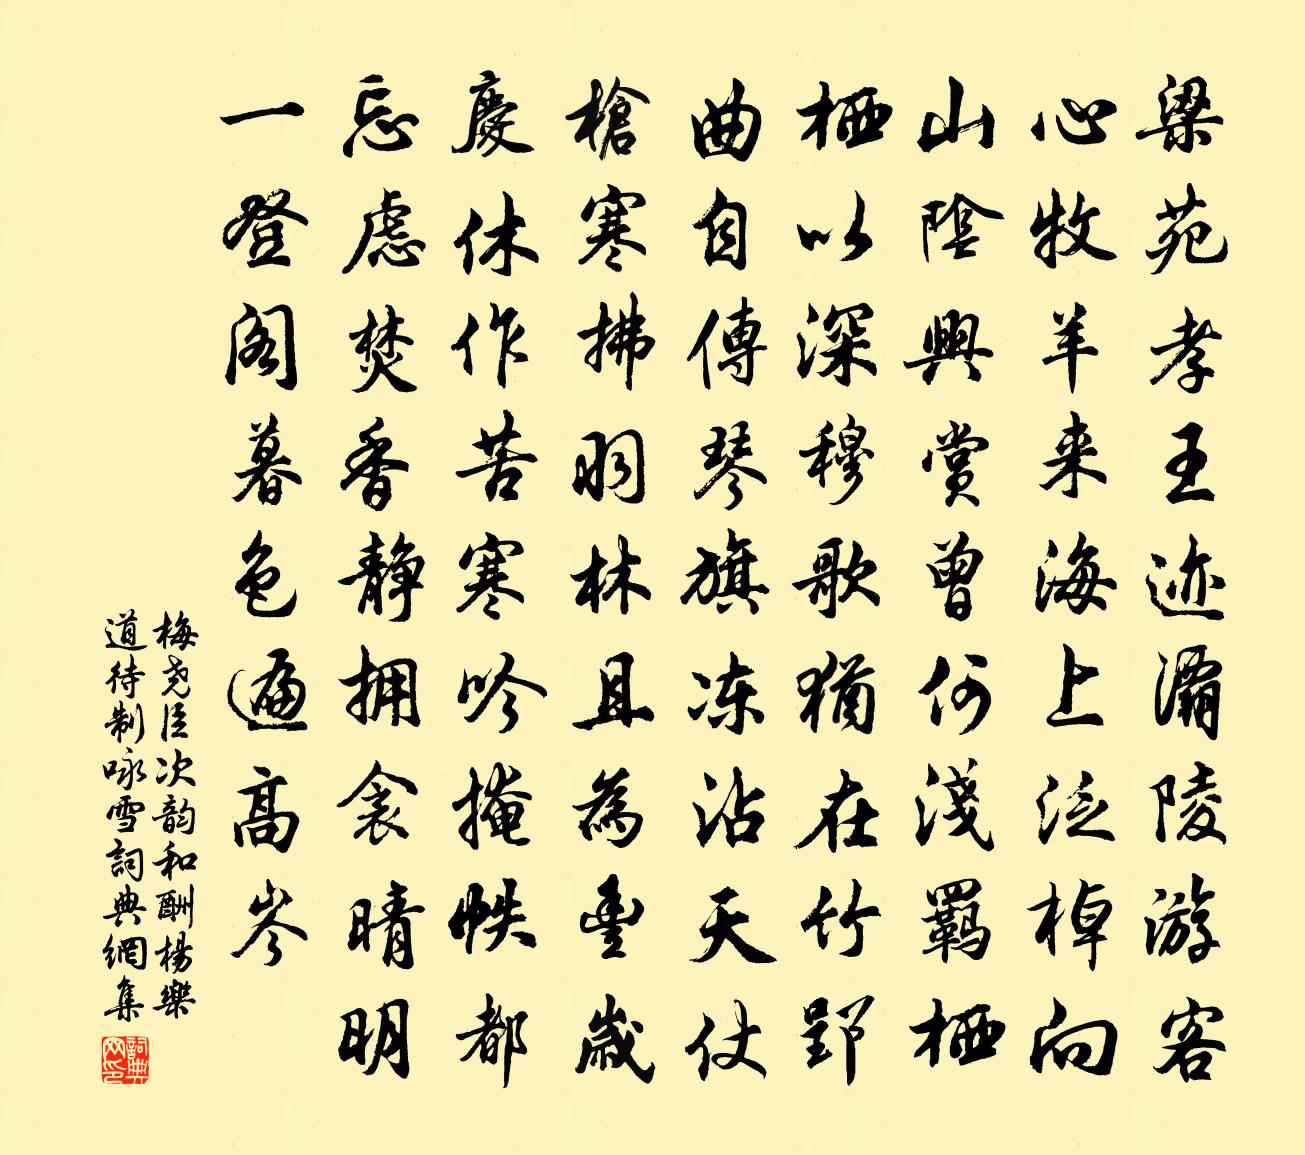 梁苑孝王迹灞陵游客
心牧羊来海上泛棹向
山陰興賞曾何淺羈栖
栖以深穆歌猶在竹郢
曲自傳琴旗冻沾天仗
槍寒拂羽林且為豊歲
慶休作苦寒吟掩帙都
忘慮焚香靜拥衾晴明
一登阁暮色遍高岑
梅尧臣次韵和酬楊樂
道待制咏雪詞典網集
詞典网印